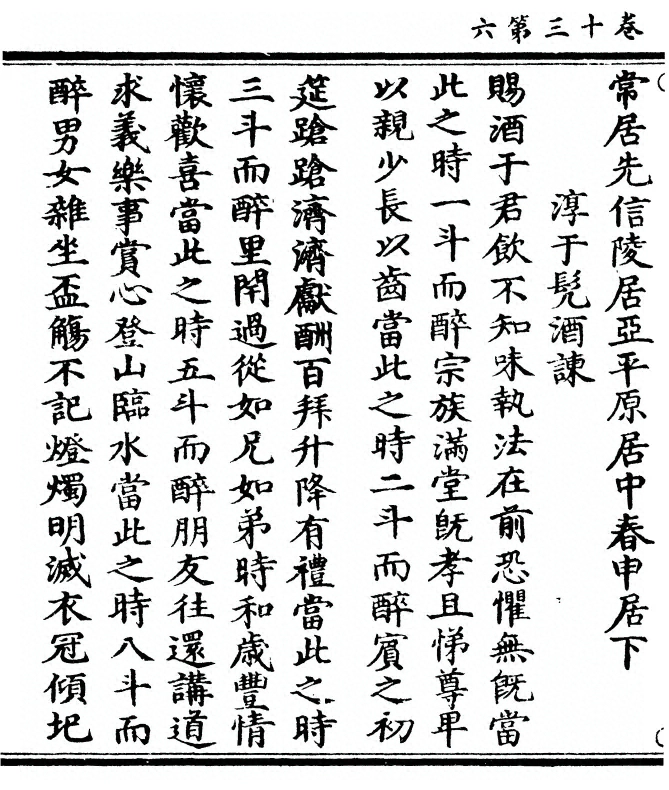 卷十三第六
常居先信陵居亞平原居中春申居下
淳于髡酒諫
賜酒于君飲不知味執法在前恐懼無旣當
此之時一斗而醉宗族滿堂旣孝且悌尊卑
以親少長以齒當此之時二斗而醉賓之初
筵蹌蹌濟濟獻酬百拜升降有禮當此之時
三斗而醉里閈過從如兄如弟時和歲豐情
懷歡喜當此之時五斗而醉朋友往還講道
求義樂事賞心登山臨水當此之時八斗而
醉男女雜坐盃觴不記燈燭明滅衣冠傾圮